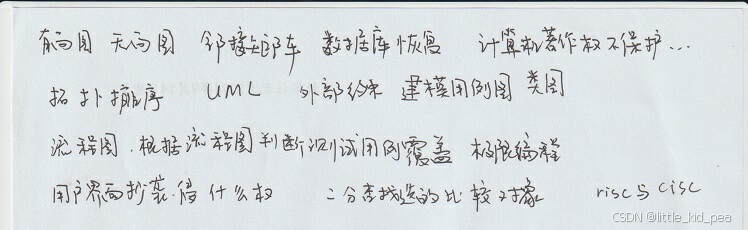 有向图 无向图 邻接矩阵 数据库恢复 计算机著作权不保护...
拓扑排序 UML 外部约束 建模用例图 类图
流程图.根据流程图判断测试用例覆盖 极限编程
用户界面抄袭.侵什么权 二分查找选的比较对象 risc与cisc
CSDN @little_kid_pea